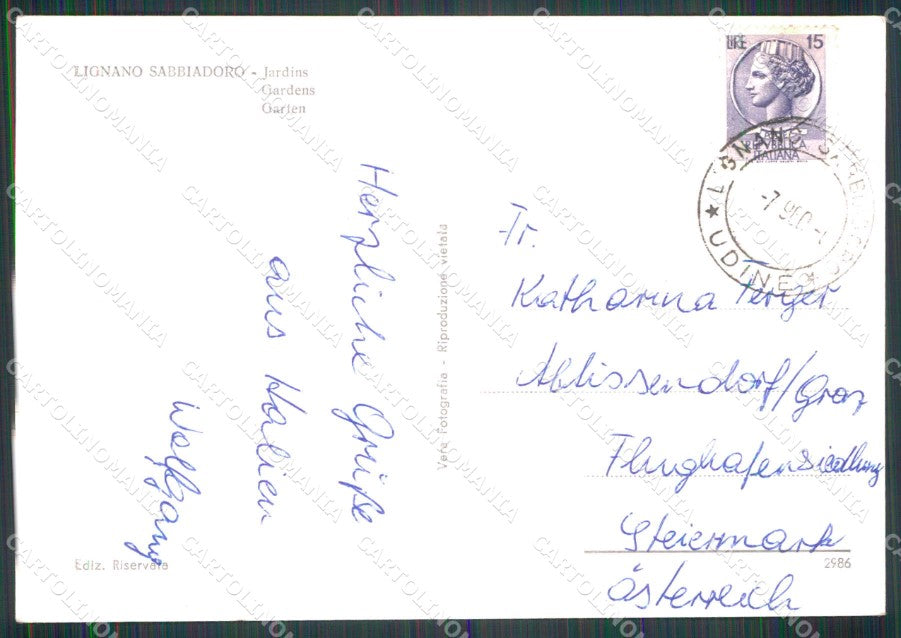 LIGNANO SABBIADORO - Jardins
Gardens
Garten
Herzliche Grüße
aus Italien
Wolfgang
Ediz. Riservata
Vera Fotografia - Riproduzione vietata
LIRE 15
REPVBBLICA
ITALIANA
LIGNANO SABBIADORO
UDINE
Fr.
Katharina
Abtissendorf/Graz
Flughafensiedlung
Steiermark
Österreich
2986
CARTOLINOMANIA